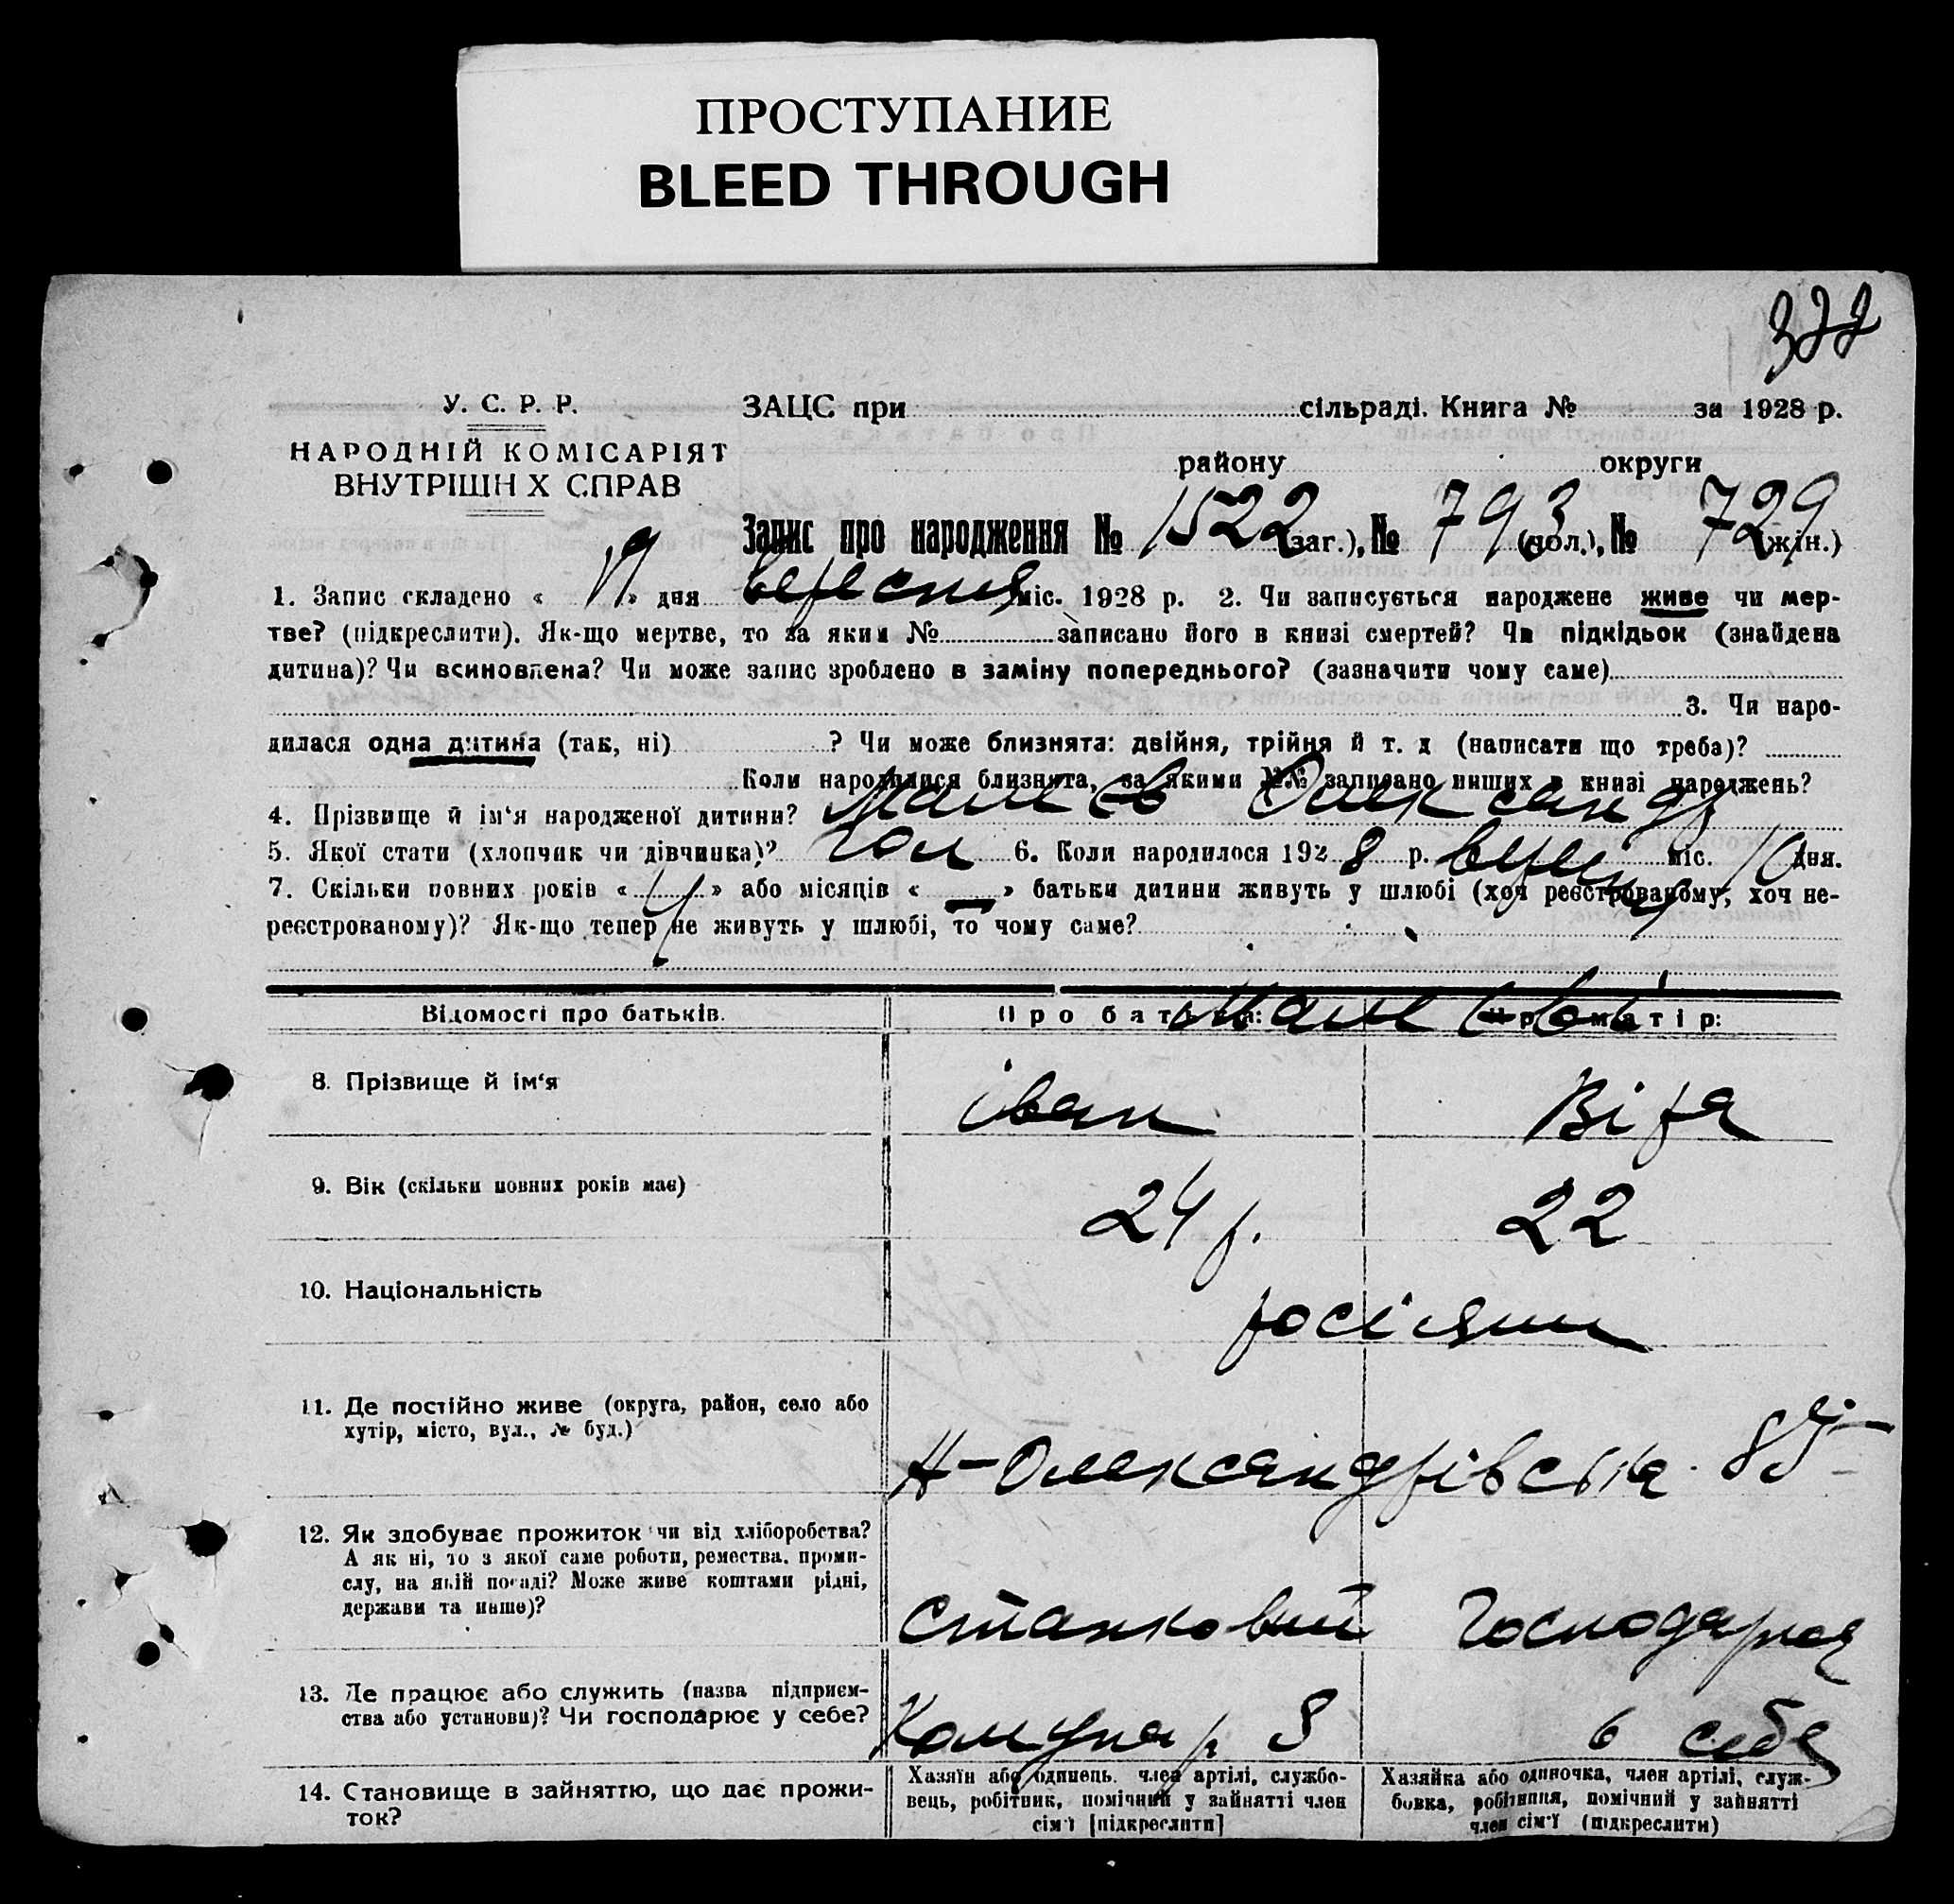 ПРОСТУПАНИЕ
BLEED THROUGH
У. С. Р. Р.
НАРОДНІЙ КОМІСАРІЯТ
ВНУТРІШН Х СПРАВ
ЗАЦС при сільраді. Книга № за 1928 р.
району округи
Запис про народження № 1522 (заг.), № 793 (чол.), № 729 (жін.)
1. Запис складено « » дня вересня міс. 1928 р. 2. Чи записується народжене живе чи мер-
тве? (підкреслити). Як-що мертве, то за яким № записано його в книзі смертей? Чи підкідьок (знайдена
дитина)? Чи всиновлена? Чи може запис зроблено в заміну попереднього? (зазначити чому саме)
3. Чи наро-
дилася одна дитина (так, ні) ? Чи може близнята: двійня, трійня й т. д (написати що треба)?
Коли народилися близнята, за якими №№ записано инших в книзі народжень?
4. Прізвище й ім‘я народженої дитини? Олександр
5. Якої стати (хлопчик чи дівчинка)? чол 6. Коли народилося 192 8 р. вересня міс. 10 дня.
7. Скільки повних років « » або місяців « » батьки дитини живуть у шлюбі (хоч реєстрованому, хоч не-
реєстрованому)? Як-що тепер не живуть у шлюбі, то чому саме?
Відомості про батьків. Про батька: Про матір:
8. Прізвище й ім‘я Іван Віра
9. Вік (скільки повних років має) 24 р. 22
10. Національність росіяни
11. Де постійно живе (округа, район, село або
хутір, місто, вул., № буд.)
Н-Олександрівська
12. Як здобуває прожиток чи від хліборобства?
А як ні, то з якої саме роботи, ремества, проми-
слу, на якій посаді? Може живе коштами рідні,
держави та инше)?
становий Господарює
13. Де працює або служить (назва підприєм-
ства або установи)? Чи господарює у себе?
Комунар 8 в себе
14. Становище в зайняттю, що дає прожи-
ток?
Хазяїн або одинець, член артілі, службо-
вець, робітник, помічний у зайнятті член
сім‘ї [підкреслити]
Хазяйка або одиночка, член артілі, служ-
бовка, робітниця, помічний у зайнятті
член сім‘ї (підкреслити)